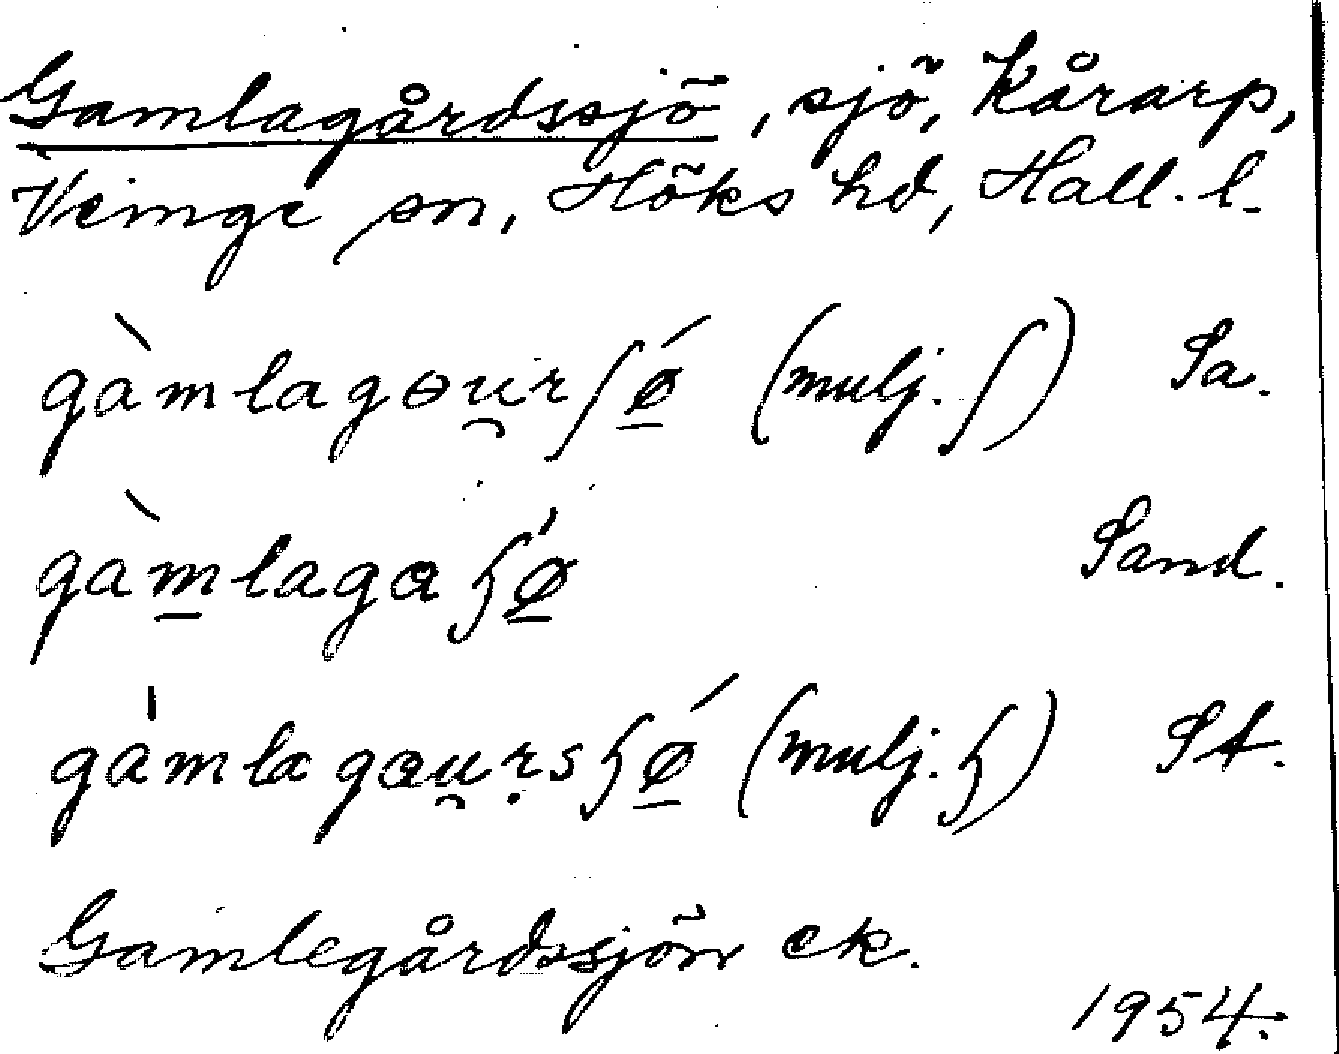 Gamlagårdssjö, sjö, Kårarp,
Veinge sn, Höks hd, Hall. l.
gàmlagɵu̯rʃǿ̠ (mulj. ʃ) Sa.
gàm̠lagɑɧǿ̠ Sand.
gàmlagɑu̯ṛsɧǿ̠ (mulj. ɧ) St.
Gamlegårdssjön ek.
1954.